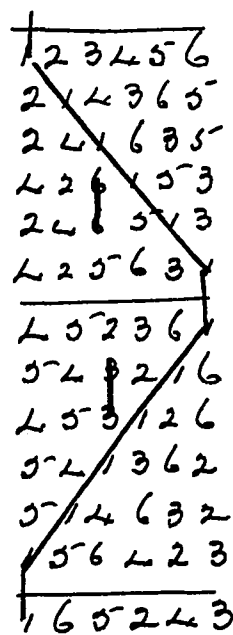 1 2 3 4 5 6
2 1 4 3 6 5
2 4 1 6 3 5
4 2 6 1 5 3
2 4 6 5 1 3
4 2 5 6 3 1
4 5 2 3 6 1
5 4 3 2 1 6
4 5 3 1 2 6
5 4 1 3 6 2
5 1 4 6 3 2
1 5 6 4 2 3
1 6 5 2 4 3